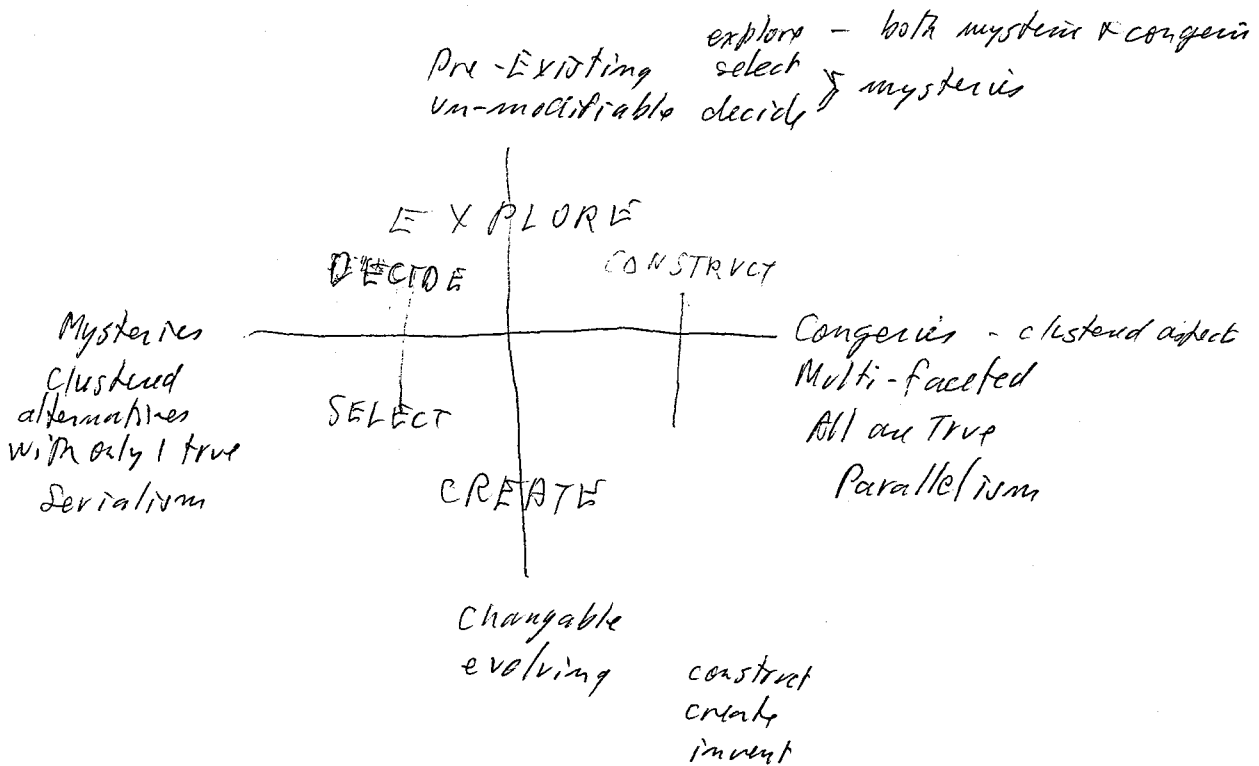 explore - both mysterie & congerie
Pre-Existing select
un-modifiable decide } mysteries
EXPLORE
DECIDE CONSTRUCT
Mysteries
Clustered
alternatives
with only 1 true
Serialism
SELECT
CREATE
Congeries - clustered aspect
Multi-faceted
All are True
Parallelism
Changable
evolving
construct
create
invent